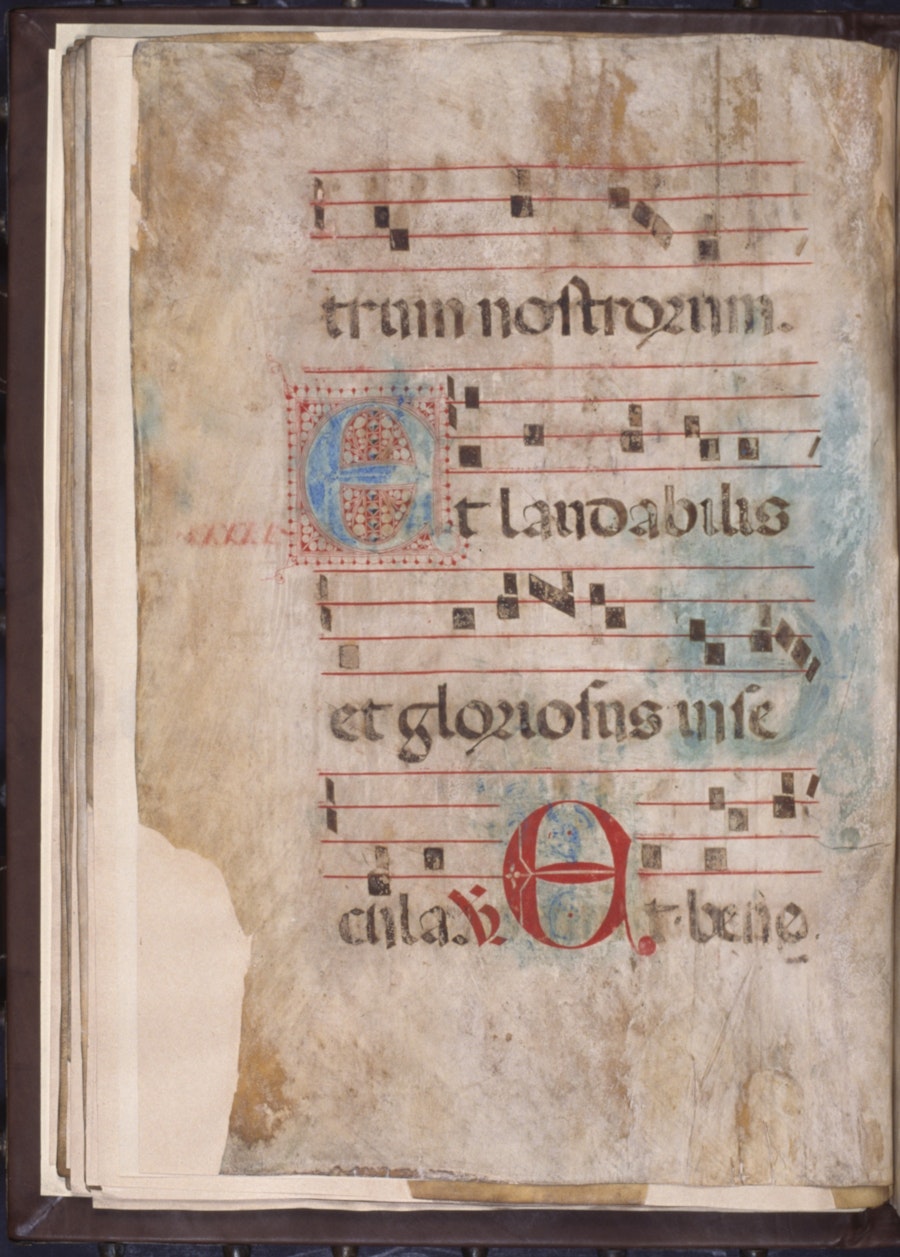 trum nostrorum.
Et laudabilis
et gloriosus in se
cula. ℣. Et bene